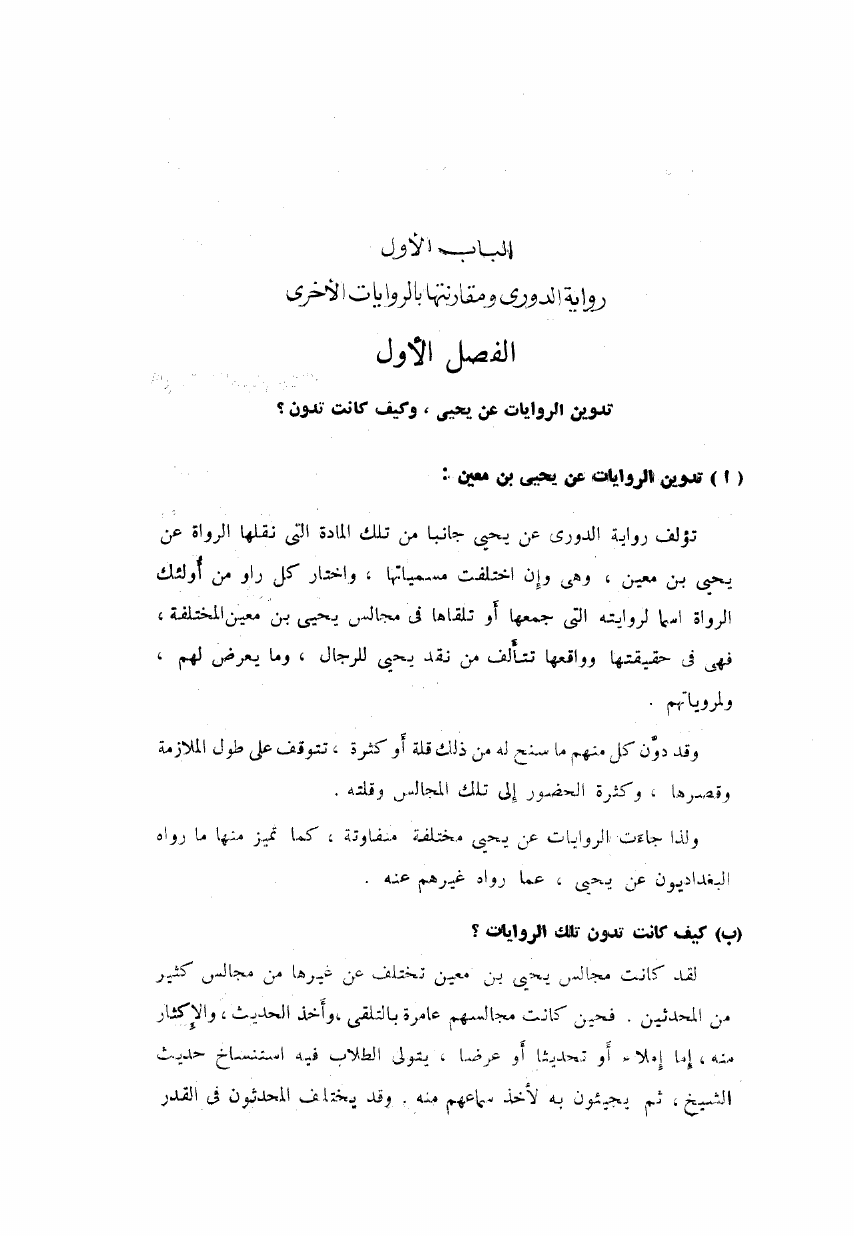 الباب الأول
رواية الدورى ومقارنتها بالروايات الأخرى
الفصل الأول
تدوين الروايات عن يحيى ، وكيف كانت تدون ؟
( أ ) تدوين الروايات عن يحيى بن معين :
تؤلف رواية الدورى عن يحيى جانبا من تلك المادة التى نقلها الرواة عن
يحيى بن معين ، وهى وإن اختلفت مسمياتها ، واختار كل راو من أولئك
الرواة اسما لروايته التى جمعها أو تلقاها فى مجالس يحيى بن معين المختلفة ،
فهى فى حقيقتها وواقعها تتألف من نقد يحيى للرجال ، وما يعرض لهم ،
ولمروياتهم .
وقد دوّن كل منهم ما سنح له من ذلك قلة أو كثرة ، تتوقف على طول الملازمة
وقصرها ، وكثرة الحضور إلى تلك المجالس وقلته .
ولذا جاءت الروايات عن يحيى مختلفة متفاوتة ، كما تميز منها ما رواه
البغداديون عن يحيى ، عما رواه غيرهم عنه .
(ب) كيف كانت تدون تلك الروايات ؟
لقد كانت مجالس يحيى بن معين تختلف عن غيرها من مجالس كثير
من المحدثين . فحين كانت مجالسهم عامرة بالتلقى ، وأخذ الحديث ، والإكثار
منه ، إما إملاء أو تحديثا أو عرضا ، يتولى الطلاب فيه استنساخ حديث
الشيخ ، ثم يجيئون به لأخذ سماعهم منه . وقد يختلف المحدثون فى القدر